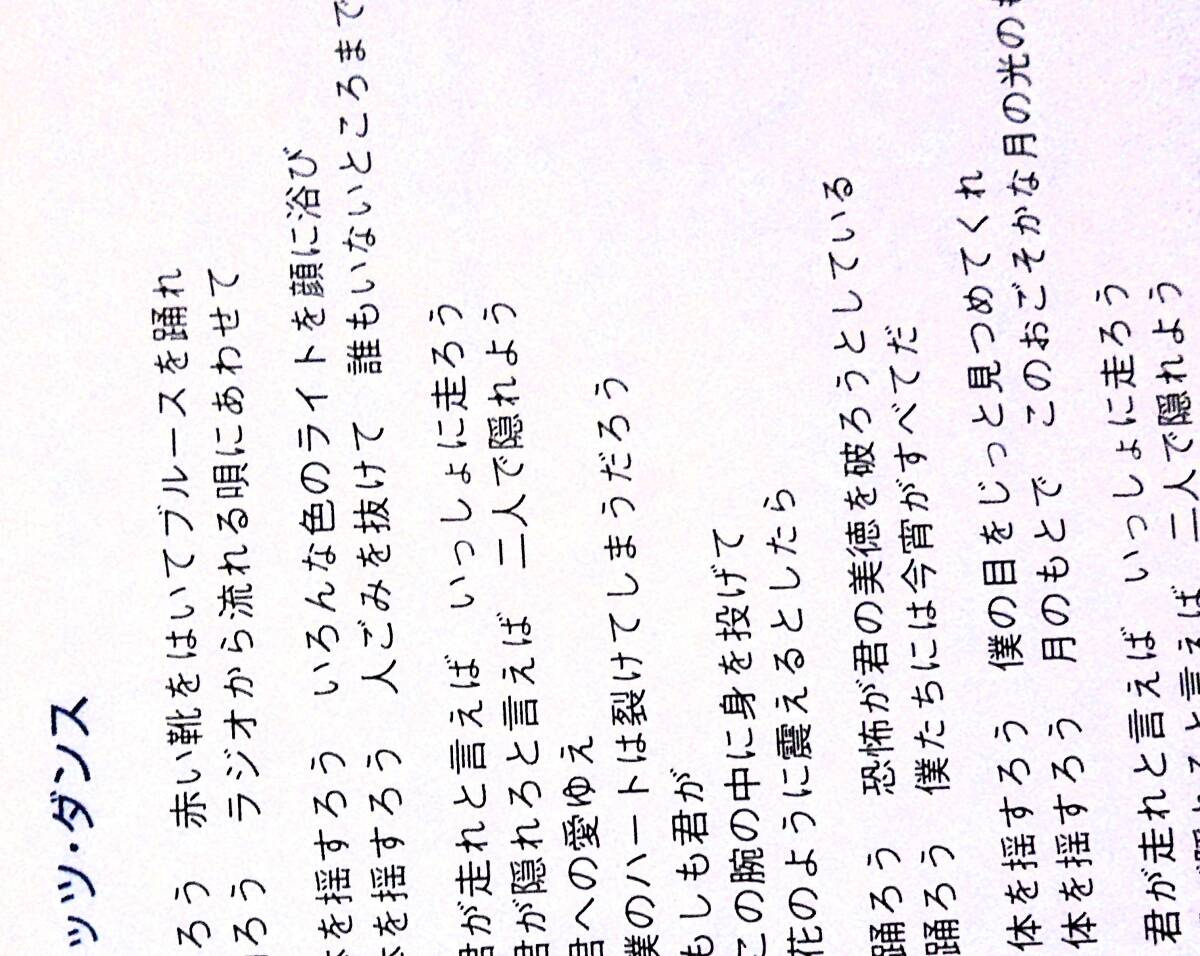 ッツ・ダンス
ろう　赤い靴をはいてブルースを踊れ
ろう　ラジオから流れる唄にあわせて
を揺すろう　いろんな色のライトを顔に浴び
を揺すろう　人ごみを抜けて　誰もいないところまで
君が走れと言えば　いっしょに走ろう
君が隠れろと言えば　二人で隠れよう
君への愛ゆえ
僕のハートは裂けてしまうだろう
もしも君が
この腕の中に身を投げて
花のように震えるとしたら
踊ろう　恐怖が君の美徳を破ろうとしている
踊ろう　僕たちには今宵がすべてだ
体を揺すろう　僕の目をじっと見つめてくれ
体を揺すろう　月のもとで　このおごそかな月の光の
君が走れと言えば　いっしょに走ろう
と言えば　二人で隠れよう